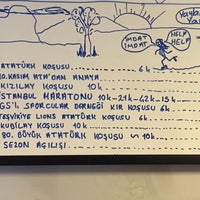 İMDAT
İMDAT
HELP
HELP
ATATÜRK KOŞUSU........... 6k
10.KASIM ATA'DAN ANMA
KIZILAY KOŞUSU 10k
İSTANBUL MARATONU 10k-21k-42k-15k
GS'Lİ SPORCULAR DERNEĞİ KIR KOŞUSU 6k
TEŞVİKİYE LIONS ATATÜRK KOŞUSU 6k
KUBİLAY KOŞUSU 10k
80. BÜYÜK ATATÜRK KOŞUSU 10k
SEZON AÇILIŞI